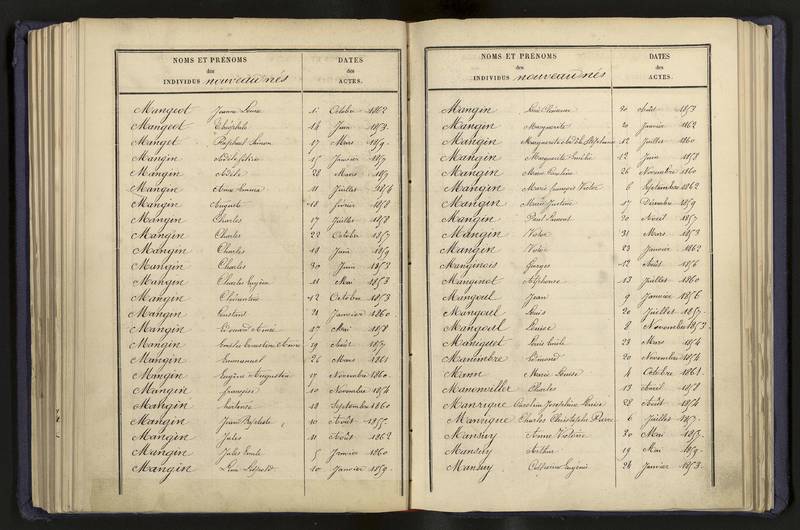 NOMS ET PRÉNOMS DATES
des des
INDIVIDUS nouveau nés ACTES.
Mangeot Jeanne Octobre 1862
Mangeot Théophile 14 Juin 1853
Mangeot Raphael Simon 17 Mars 1859
Mangin Janvier
Mangin Adèle 28 Mars
Mangin Anne 11 Juillet 1854
Mangin Auguste 18 février 1858
Mangin Charles 17 Juillet 1858
Mangin Charles 22 Octobre 1857
Mangin Charles 18 Juin 1859
Mangin Charles 30 Juin 1853
Mangin Charles Eugène 11 Mai 1853
Mangin Clémentine 12 Octobre 1853
Mangin Constant 21 Janvier 1860
Mangin Edouard Aimé 17 Mai 1858
Mangin Ernestine 19 Août
Mangin Emmanuel 26 Mars 1861
Mangin Eugène Augustin 17 Novembre 1860
Mangin françoise 10 Novembre 1854
Mangin hortense 18 Septembre 1860
Mangin Jean Baptiste 10 Août 1855
Mangin Jules 11 Août 1862
Mangin Jules Emile 5 Janvier 1860
Mangin Léopold 10 Janvier 1859
NOMS ET PRÉNOMS DATES
des des
INDIVIDUS nouveau nés ACTES.
Mangin 20 Août 1853
Mangin Marguerite 20 Janvier 1862
Mangin Marguerite Stéphanie 12 Juillet 1860
Mangin Marguerite Emélie 12 Juin 1858
Mangin Marie 26 Novembre 1860
Mangin Marie françois Victor 6 Septembre 1862
Mangin Marie Justine 17 Décembre 1859
Mangin Paul Laurent 20 Août 1857
Mangin Victor 31 Mars 1853
Mangin Victor 23 Janvier 1862
Manginois Georges 12 Août 1856
Manginot Alphonse 13 Juillet 1860
Mangoul Jean 9 Janvier 1856
Mangoul Louis 20 Juillet 1857
Mangoul Louise 2 Novembre 1853
Louis Emile 28 Mars 1854
Edmond 20 Novembre 1854
Mann Marie Louise 4 Octobre 1861
Manonville Charles 13 Avril 1858
Manrique Caroline Joséphine Louise 28 Août 1854
Manrique Charles Christophe Pierre 6 Juillet 1857
Mansuy Anne Victoire 30 Mai
Mansuy Arthur 19 Mai 1859
Mansuy Catherine Eugénie 24 Janvier 1853